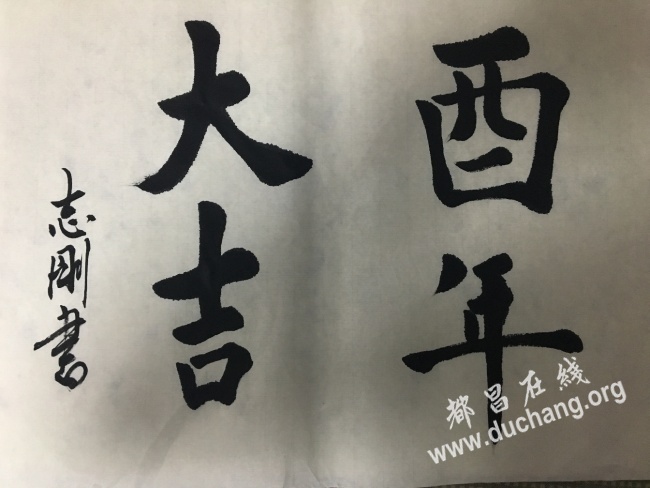 酉年
大吉
志刚書
都昌在线
www.duchang.org